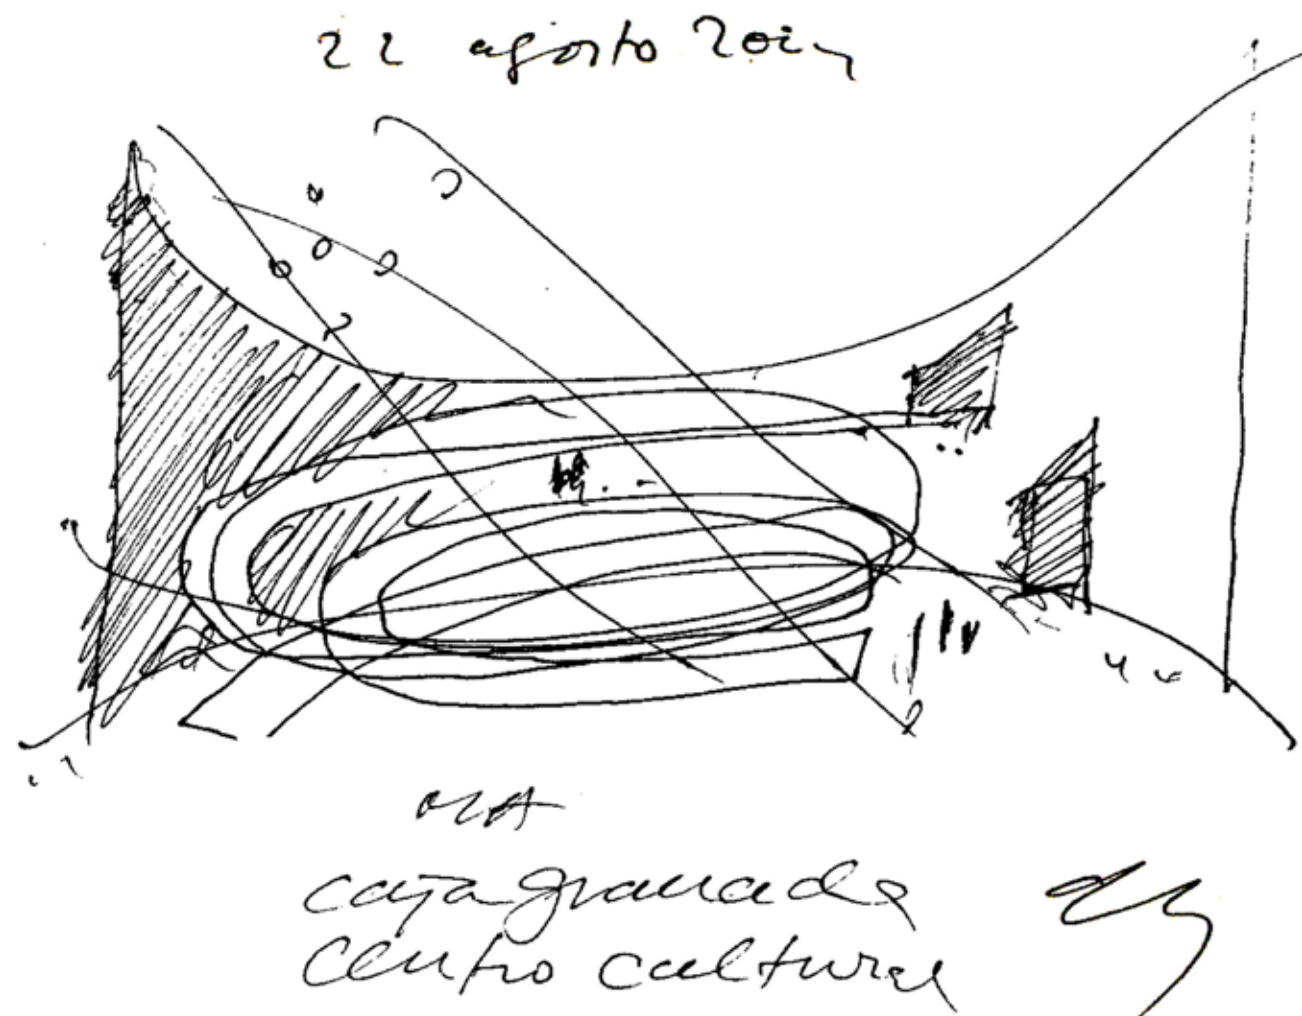 22 agosto
MA
cajagranada
centro cultural